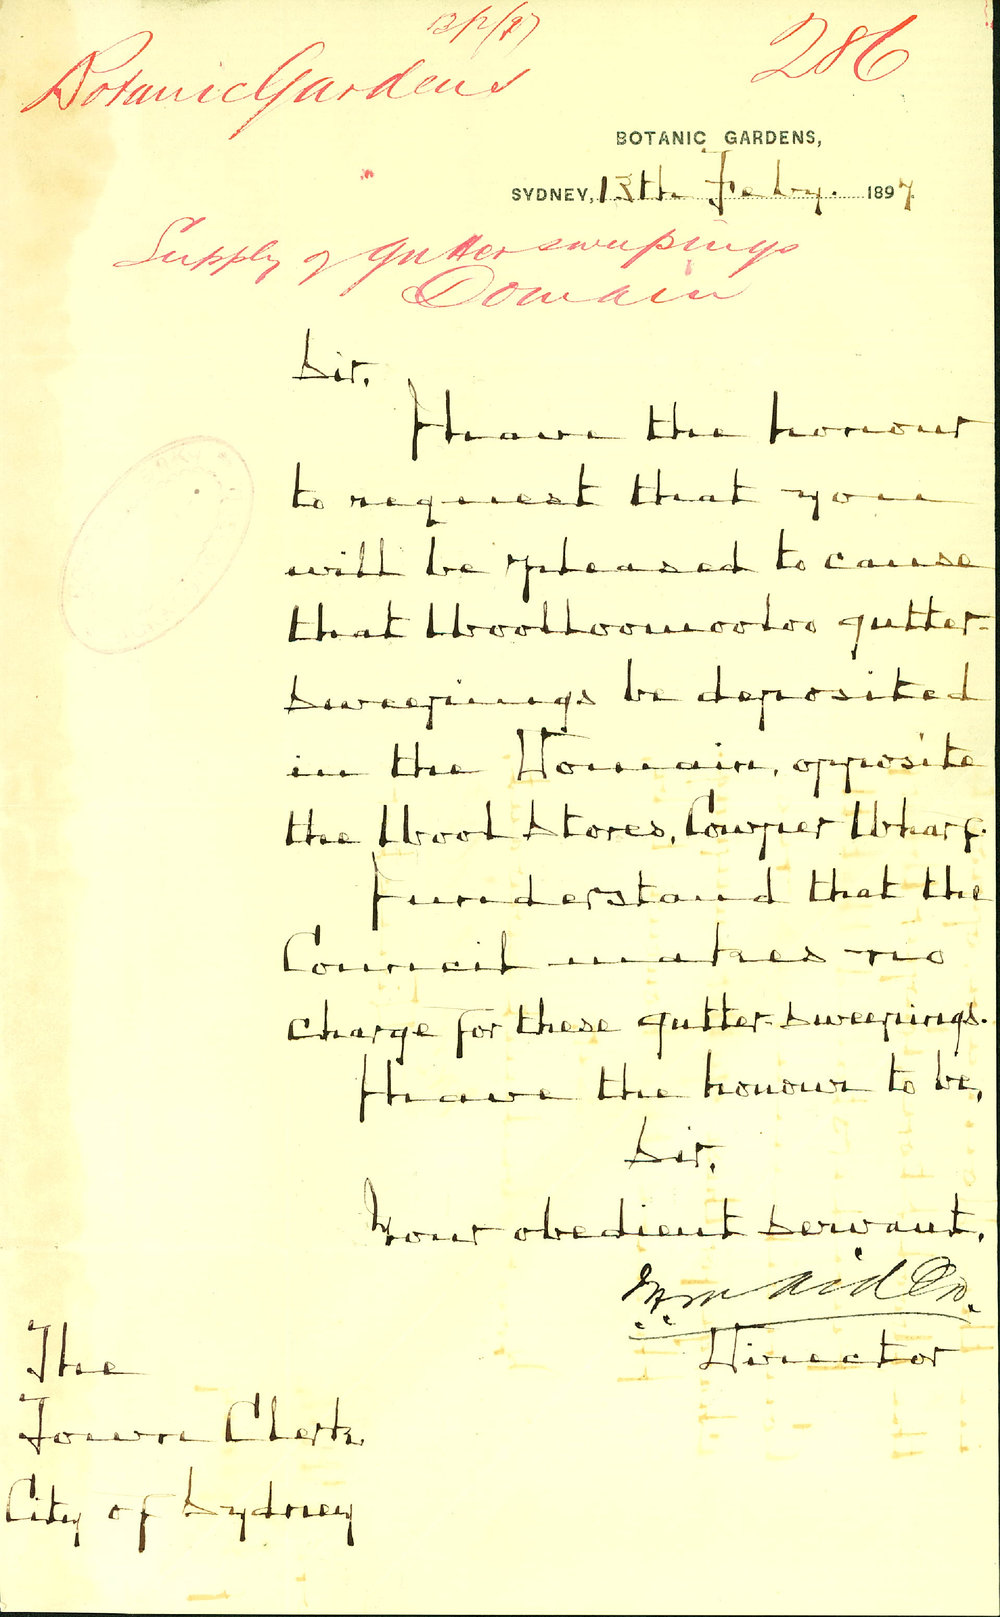 13/2/97
286
Botanic Gardens
BOTANIC GARDENS,
SYDNEY, 13th Feby. 1897
Supply of gutter sweepings
Domain
Sir,
I have the honour
to request that you
will be pleased to cause
that Woolloomooloo gutter-
sweepings be deposited
in the Domain, opposite
the Wool Stores, Cowper Wharf.
I understand that the
Council makes no
charge for these gutter-sweepings.
I have the honour to be,
Sir,
Your obedient servant,
J. H. Maiden.
Director
The
Town Clerk,
City of Sydney